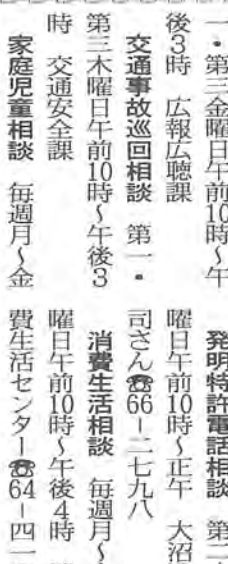 一・第三金曜日午前10時～午
後3時　広報広聴課
交通事故巡回相談　第一・
第三木曜日午前10時～午後3
時　交通安全課
家庭児童相談　毎週月～金
発明特許電話相談　第二
曜日午前10時～正午　大沼
司さん☎66－二七九八
消費生活相談　毎週月～
曜日午前10時～午後4時
費生活センター☎64－四一